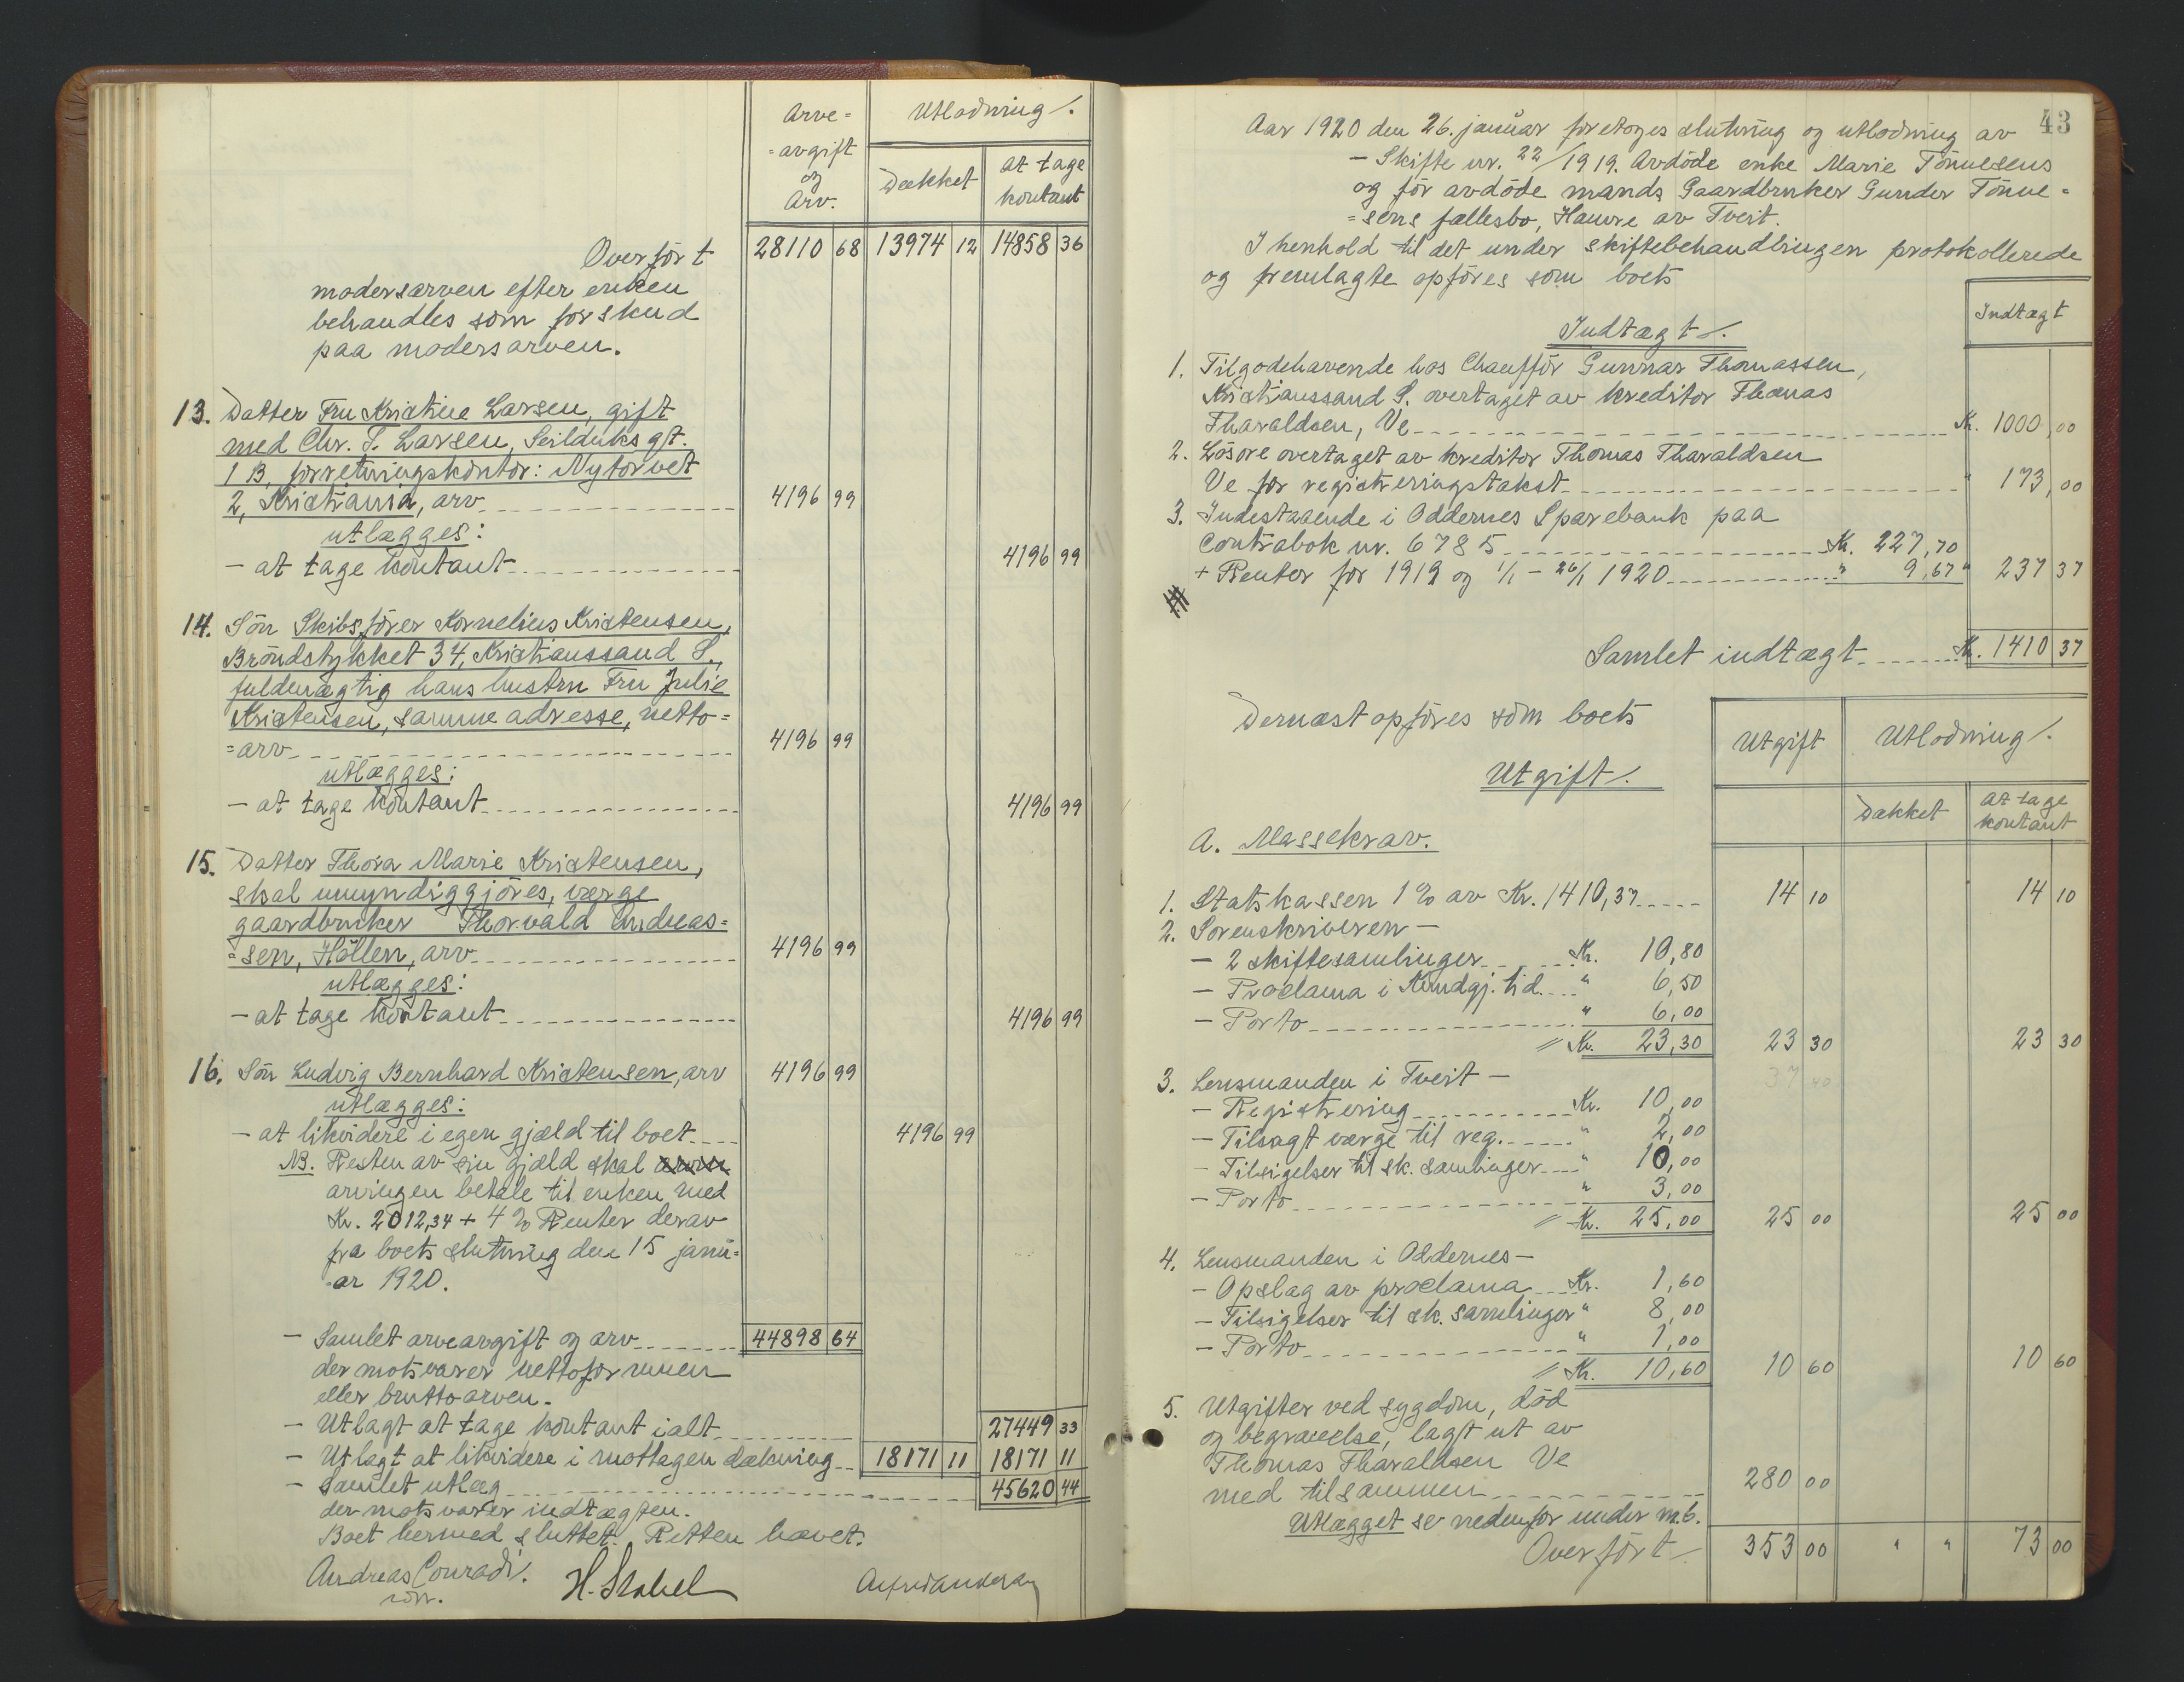 Arve=
=avgift
og
Arv.
Utlodning ⁒
Dækket
At tage
kontant
Overført 28110 68 13974 12 14858 36
modersarven efter enken
behandles som forskud
paa modersarven.
13. Datter Fru Kristine Larsen, gift
med Chr. S. Larsen, Seilduks gt.
1 B, forretningskontor: Nytorvet
2, Kristiania, arv 4196 99
utlægges:
- at tage kontant 4196 99
14. Søn Skibsfører Kornelius Kristensen,
Brøndstykket 34, Kristianssand S.,
fuldmægtig hans hustru Fru Julie
Kristensen, samme adresse, netto=
=arv 4196 99
utlægges:
- at tage kontant 4196 99
15. Datter Thora Marie Kristensen,
skal umyndiggjøres, værge
gaardbruker Thorvald Andreas=
=sen, Høllen, arv 4196 99
utlægges:
- at tage kontant 4196 99
16. Søn Ludvig Bernhard Kristensen, arv 4196 99
utlægges:
- at likvidere i egen gjæld til boet 4196 99
NB. Resten av sin gjæld skal
arvingen betale til enken med
Kr. 2012,34 + 4 % Renter derav
fra boets slutning den 15 janu=
=ar 1920.
- Samlet arveavgift og arv 44898 64
der motsvarer nettoformuen
eller bruttoarven.
- Utlagt at tage kontant ialt 27449 33
- Utlagt at likvidere i mottagen dækning 18171 11 18171 11
- Samlet utlæg 45620 44
der motsvarer indtægten.
Boet hermed sluttet. Retten hævet.
Andreas Conradi. H. Stabel
43
Aar 1920 den 26. januar foretoges slutning og utlodning av
- Skifte nr. 22/1919. Avdøde enke Marie Tønnesens
og før avdøde mands Gaardbruker Gunder Tønne=
=sens fællesbo, Hamre av Tveit.
I henhold til det under skiftebehandlingen protokollerede
og fremlagte opføres som boets
Indtægt
Indtægt ⁒
1. Tilgodehavende hos Chauffør Gunnar Thomassen,
Kristianssand S. overtaget av kreditor Thomas
Tharaldsen, Ve Kr. 1000,00
2. Løsøre overtaget av kreditor Thomas Tharaldsen
Ve for registreringstakst " 173,00
3. Indestaaende i Oddernes Sparebank paa
Contrabok nr. 6785 Kr. 227,70
+ Renter for 1919 og 1/1 - 26/1 1920 " 9,67 " 237 37
Samlet indtægt Kr. 1410 37
Dernæst opføres som boets
Utgift
Utlodning ⁒
Utgift ⁒
Dækket
At tage
kontant
A. Massekrav.
1. Statskassen 1 % av Kr. 1410,37 14 10 14 10
2. Sorenskriveren -
- 2 skiftesamlinger Kr. 10,80
- Proclama i Kundgj. tid. " 6,50
- Porto " 6,00
// Kr. 23,30 23 30 23 30
3. Lensmanden i Tveit - 37 40
- Registrering Kr. 10,00
- Tilsagt værge til reg. " 2,00
- Tilsigelser til sk. samlinger " 10,00
- Porto " 3,00
// Kr. 25,00 25 00 25 00
4. Lensmanden i Oddernes -
- Opslag av proclama Kr. 1,60
- Tilsigelser til sk. samlinger " 8,00
- Porto " 1,00
// Kr. 10,60 10 60 10 60
5. Utgifter ved sygdom, død
og begravelse, lagt ut av
Thomas Tharaldsen Ve
med tilsammen 280 00
Utlægget se nedenfor under nr. 6.
Overført 353 00 " " 73 00